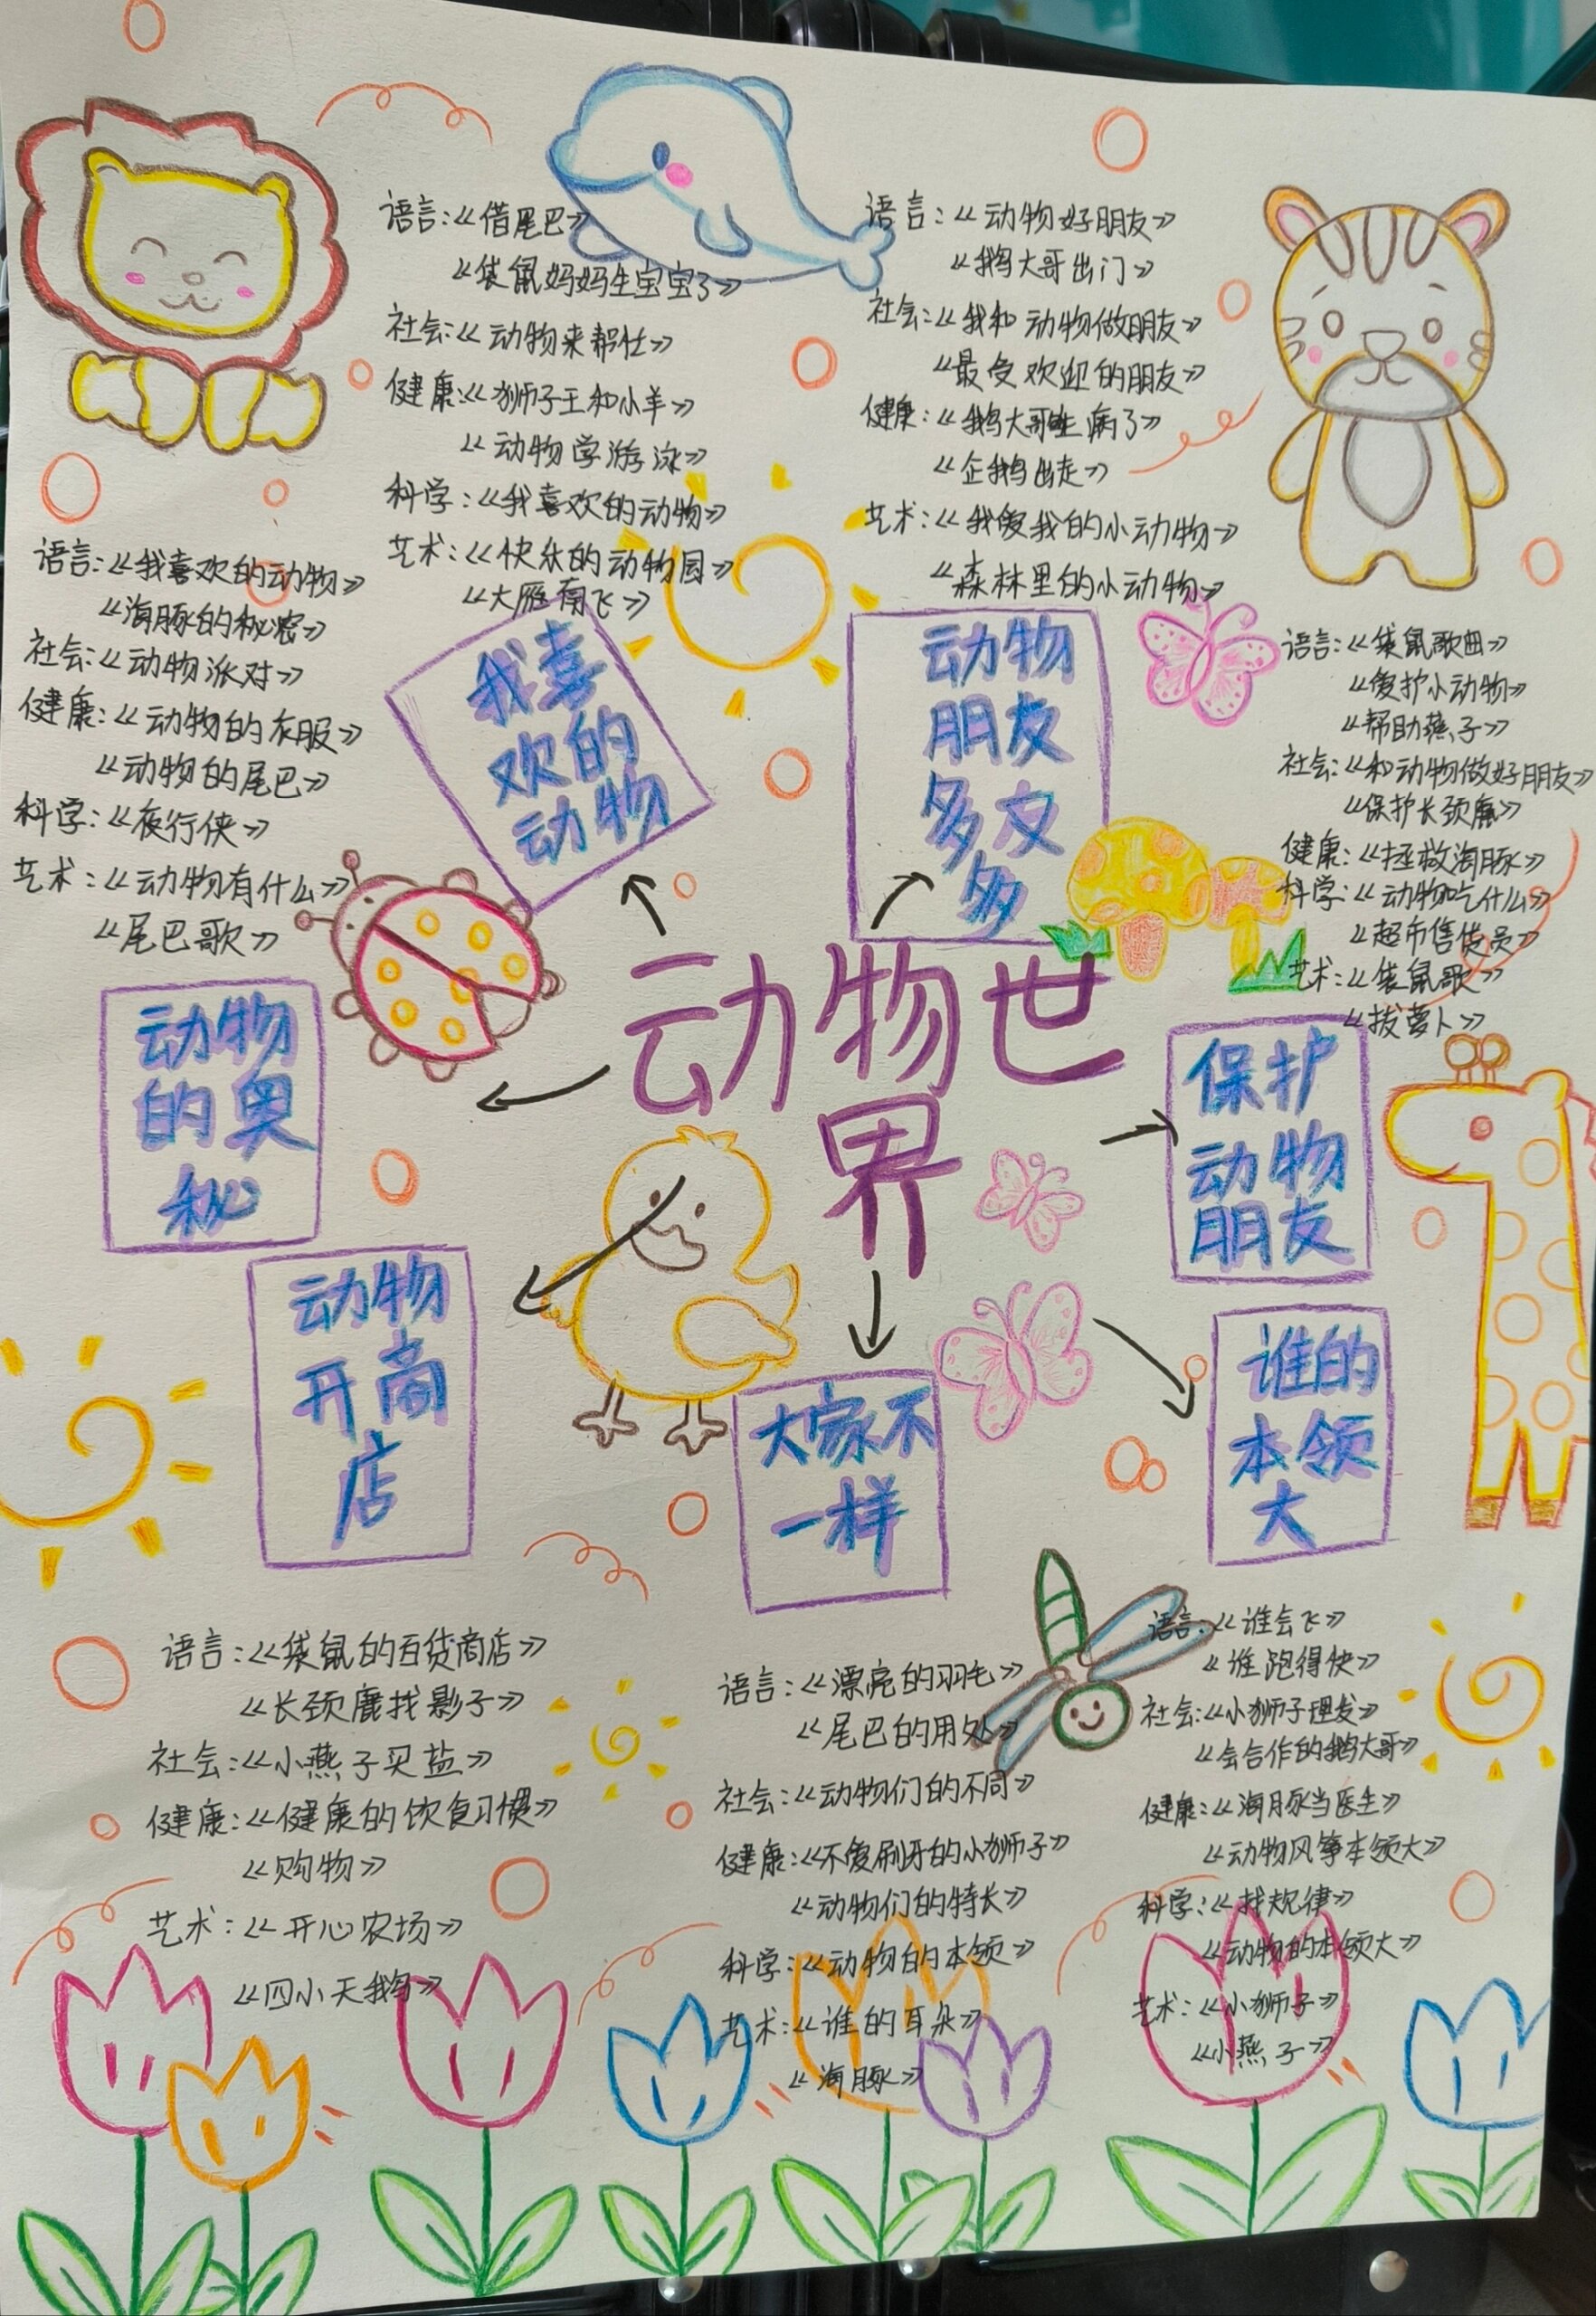 动物世
界
语言:《借尾巴》
《袋鼠妈妈生宝宝了》
社会:《动物来帮忙》
健康:《狮子王和小羊》
《动物学游泳》
科学:《我喜欢的动物》
艺术:《快乐的动物园》
《大雁南飞》
我喜
欢的
动物
语言:《动物好朋友》
《鹅大哥出门》
社会:《我和动物做朋友》
《最受欢迎的朋友》
健康:《鹅大哥生病了》
《企鹅出走》
艺术:《我爱我的小动物》
《森林里的小动物》
动物
朋友
多又
多
语言:《我喜欢的动物》
《海豚的秘密》
社会:《动物派对》
健康:《动物的衣服》
《动物的尾巴》
科学:《夜行侠》
艺术:《动物有什么》
《尾巴歌》
动物
的奥
秘
语言:《袋鼠歌曲》
《爱护小动物》
《帮助燕子》
社会:《和动物做好朋友》
《保护长颈鹿》
健康:《拯救海豚》
科学:《动物吃什么》
《超市售货员》
艺术:《袋鼠歌》
《拔萝卜》
保护
动物
朋友
动物
开商
店
语言:《袋鼠的百货商店》
《长颈鹿找影子》
社会:《小燕子买盐》
健康:《健康的饮食习惯》
《购物》
艺术:《开心农场》
《四小天鹅》
大家不
一样
语言:《漂亮的羽毛》
《尾巴的用处》
社会:《动物们的不同》
健康:《不爱刷牙的小狮子》
《动物们的特长》
科学:《动物的本领》
艺术:《谁的耳朵》
《海豚》
谁的
本领
大
语言:《谁会飞》
《谁跑得快》
社会:《小狮子理发》
《会合作的鹅大哥》
健康:《海豚当医生》
《动物风筝本领大》
科学:《找规律》
《动物的本领大》
艺术:《小狮子》
《小燕子》